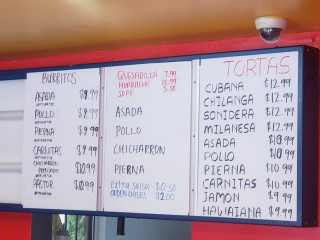 BURRITOS
ASADA $9.99
POLLO $9.99
PIERNA $9.99
CARNITAS $9.99
CHICHARRON
PRENSADO $10.99
PASTOR $10.99
QUESADILLA 7.99
HUARACHE 10.99
SOPE 5.50
ASADA
POLLO
CHICHARRON
PIERNA
EXTRA SALSA $0.50
ORDEN CHILES $2.00
TORTAS
CUBANA $12.99
CHILANGA $12.99
SONIDERA $12.99
MILANESA $12.99
ASADA $10.99
POLLO $10.99
PIERNA $10.99
CARNITAS $10.99
JAMON $9.99
HAWAIANA $9.99